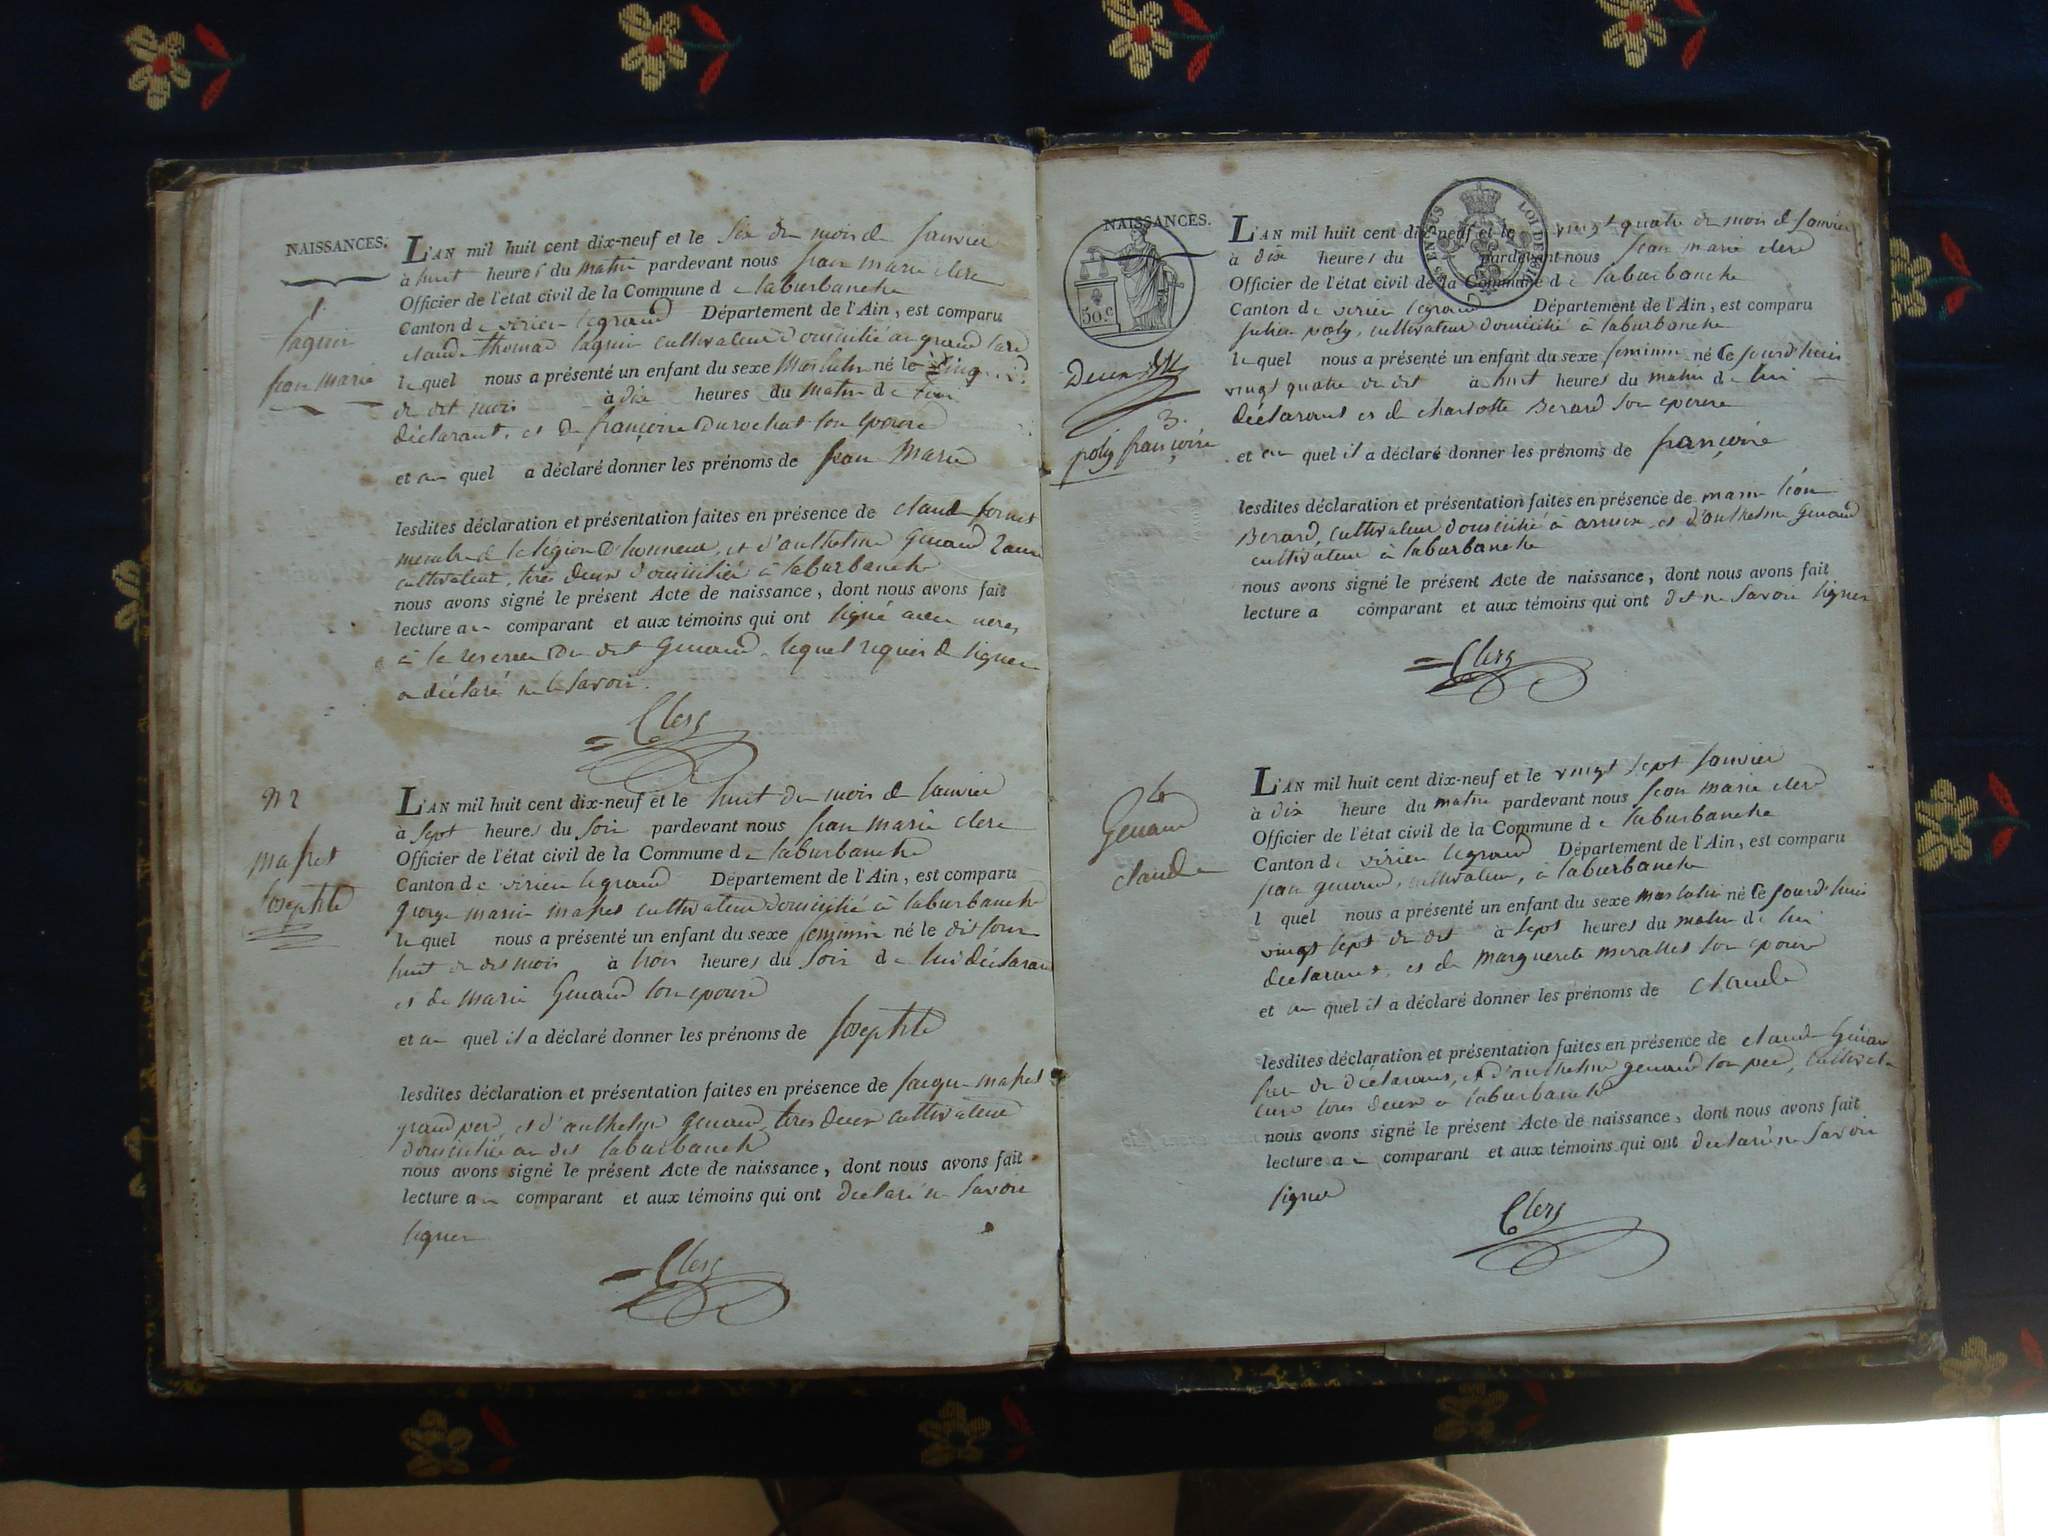 NAISSANCES.
1.
Jean Marie
L'AN mil huit cent dix-neuf et le six du mois de Janvier
à huit heures du matin pardevant nous Jean Marie clerc
Officier de l'état civil de la Commune de laburbanche
Canton de virieu legrand Département de l'Ain, est comparu
claude thomas cultivateur domicilié au grand
lequel nous a présenté un enfant du sexe Masculin né le cinq
du dit mois à dix heures du matin de lui
déclarant, et de françoise Durochat son épouse
et au quel a déclaré donner les prénoms de Jean Marie
lesdites déclaration et présentation faites en présence de claude
membre de la légion d'honneur, et d'anthelme Genand
cultivateur, tous deux domiciliés à laburbanche
nous avons signé le présent Acte de naissance, dont nous avons fait
lecture au comparant et aux témoins qui ont signé avec nous
à la reserve du dit Genand, lequel requis de signer
a déclaré ne le savoir.
Clerc
N 2
Josephte
L'AN mil huit cent dix-neuf et le huit du mois de Janvier
à sept heures du soir pardevant nous Jean marie clerc
Officier de l'état civil de la Commune de laburbanche
Canton de virieu legrand Département de l'Ain, est comparu
george marie cultivateur domicilié à laburbanche
lequel nous a présenté un enfant du sexe feminin né le dit jour
huit du dit mois à trois heures du soir de lui déclarant
et de marie Genand son epouse
et au quel il a déclaré donner les prénoms de Josephte
lesdites déclaration et présentation faites en présence de Jacque
grand pere, et d'anthelme genand, tous deux cultivateurs
domiciliés au dit laburbanche
nous avons signé le présent Acte de naissance, dont nous avons fait
lecture au comparant et aux témoins qui ont déclaré ne savoir
signer
Clerc
NAISSANCES.
50.c
EN SUS LOI DE 1816
3.
poly françoise
L'AN mil huit cent dix-neuf et le vingt quatre du mois de Janvier
à dix heures du pardevant nous Jean marie clerc
Officier de l'état civil de la Commune de laburbanche
Canton de virieu legrand Département de l'Ain, est comparu
Julien poly, cultivateur domicilié à laburbanche
lequel nous a présenté un enfant du sexe feminin né Ce jourd'huis
vingt quatre du dit à huit heures du matin de lui
déclarant et de charlotte Berard son epouse
et au quel il a déclaré donner les prénoms de françoise
lesdites déclaration et présentation faites en présence de léon
Berard, cultivateur domicilié à et d'anthelme Genand
cultivateur à laburbanche
nous avons signé le présent Acte de naissance, dont nous avons fait
lecture a comparant et aux témoins qui ont dit ne savoir signer
Clerc
4
Genand
claude
L'AN mil huit cent dix-neuf et le vingt sept Janvier
à dix heure du matin pardevant nous Jean marie clerc
Officier de l'état civil de la Commune de laburbanche
Canton de virieu legrand Département de l'Ain, est comparu
Jean genand, cultivateur, à laburbanche
l quel nous a présenté un enfant du sexe masculin né Ce jourd'huis
vingt sept du dit à sept heures du matin de lui
déclarant, et de marguerite son epouse
et au quel il a déclaré donner les prénoms de claude
lesdites déclaration et présentation faites en présence de claude Genand
du déclarant, et d'anthelme genand son pere, cultivat
eurs tous deux à laburbanche
nous avons signé le présent Acte de naissance, dont nous avons fait
lecture au comparant et aux témoins qui ont déclaré ne savoir
signer
Clerc